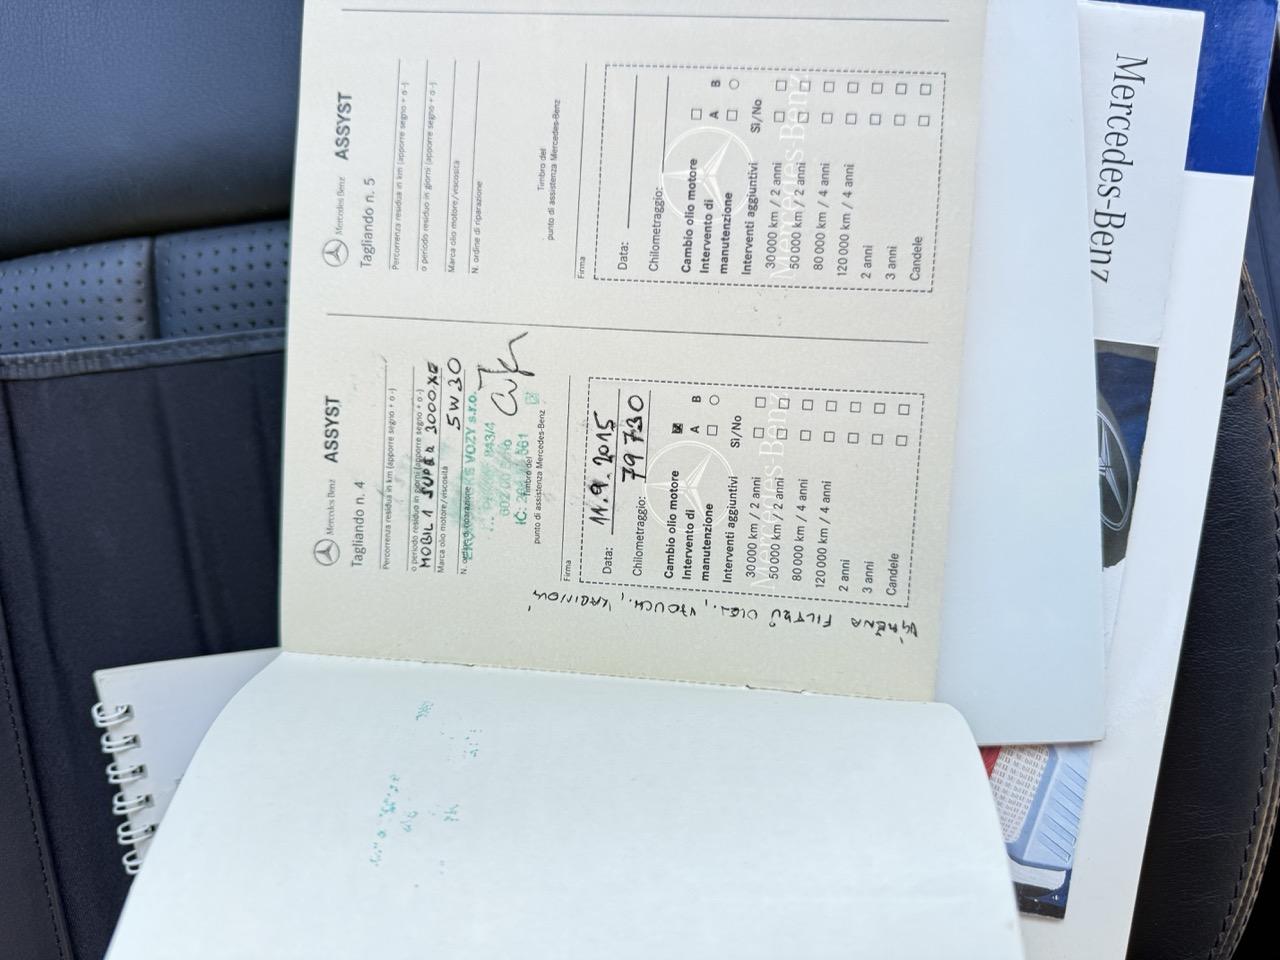 Mercedes-Benz ASSYST
Tagliando n. 4
Percorrenza residua in km (apporre segno + o -)
o periodo residuo in giorni (apporre segno + o -)
MOBIL 1 SUPER 3000 XE
Marca olio motore/viscosità
5W30
N. ordine di riparazione
VOZY s.r.o.
843/4
IC:
561
Timbro del
punto di assistenza Mercedes-Benz
Firma
Data: 11.9.2015
Chilometraggio: 79 730
Cambio olio motore
Intervento di A B
manutenzione
Interventi aggiuntivi Sì/No
30 000 km / 2 anni
50 000 km / 2 anni
80 000 km / 4 anni
120 000 km / 4 anni
2 anni
3 anni
Candele
Mercedes-Benz
FILTRŮ OLEJ., VZDUCH., KABINOV
Mercedes-Benz ASSYST
Tagliando n. 5
Percorrenza residua in km (apporre segno + o -)
o periodo residuo in giorni (apporre segno + o -)
Marca olio motore/viscosità
N. ordine di riparazione
Timbro del
punto di assistenza Mercedes-Benz
Firma
Data:
Chilometraggio:
Cambio olio motore
Intervento di A B
manutenzione
Interventi aggiuntivi Sì/No
30 000 km / 2 anni
50 000 km / 2 anni
80 000 km / 4 anni
120 000 km / 4 anni
2 anni
3 anni
Candele
Mercedes-Benz
Mercedes-Benz